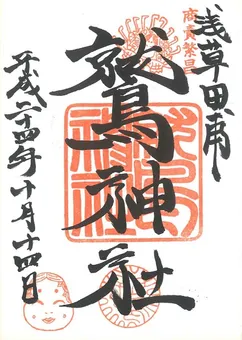 浅草田甫
商売繁昌
鷲神社
平成二十四年十月十四日